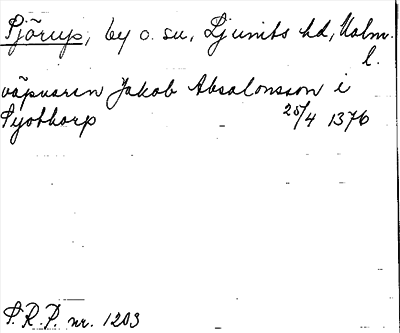 Pjörup, by o. sn, Ljunits hd, Malm.
l.
väpnaren Jakob Absalonsson i
Pyothorp 25/4 1376
S.R.P. nr. 1203